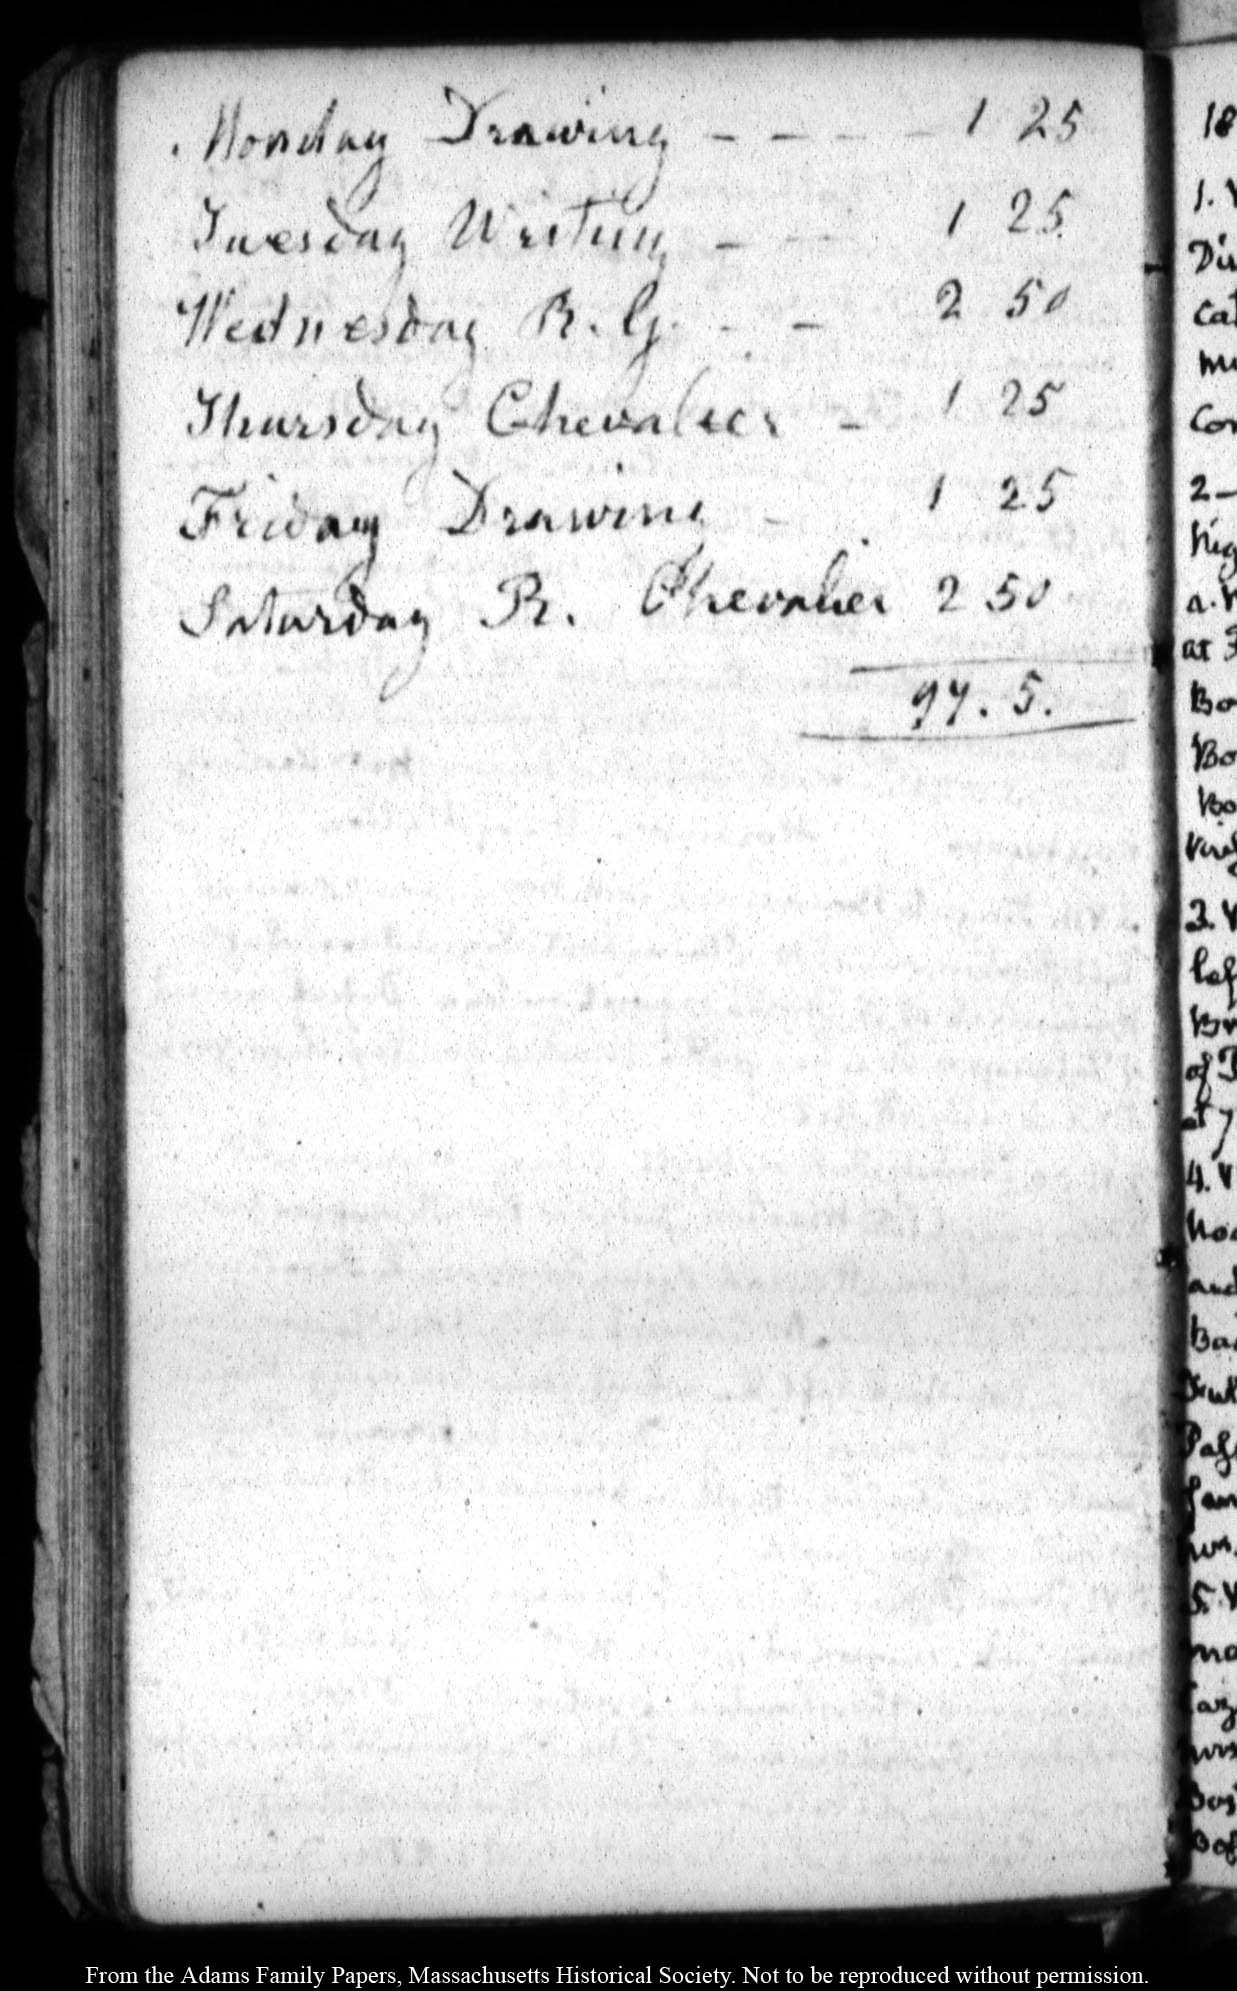 Monday Drawing - - - - 1 25
Tuesday Writing - - 1 25.
Wednesday R. G. - - 2 50
Thursday Chevalier - 1 25
Friday Drawing - 1 25
Saturday R. Chevalier 2 50
97. 5.
18
1.
Dis
cat
Con
2-
a.
at
Bo
Bo
Bo
3.
of
at 7
4.
and
5.
From the Adams Family Papers, Massachusetts Historical Society. Not to be reproduced without permission.